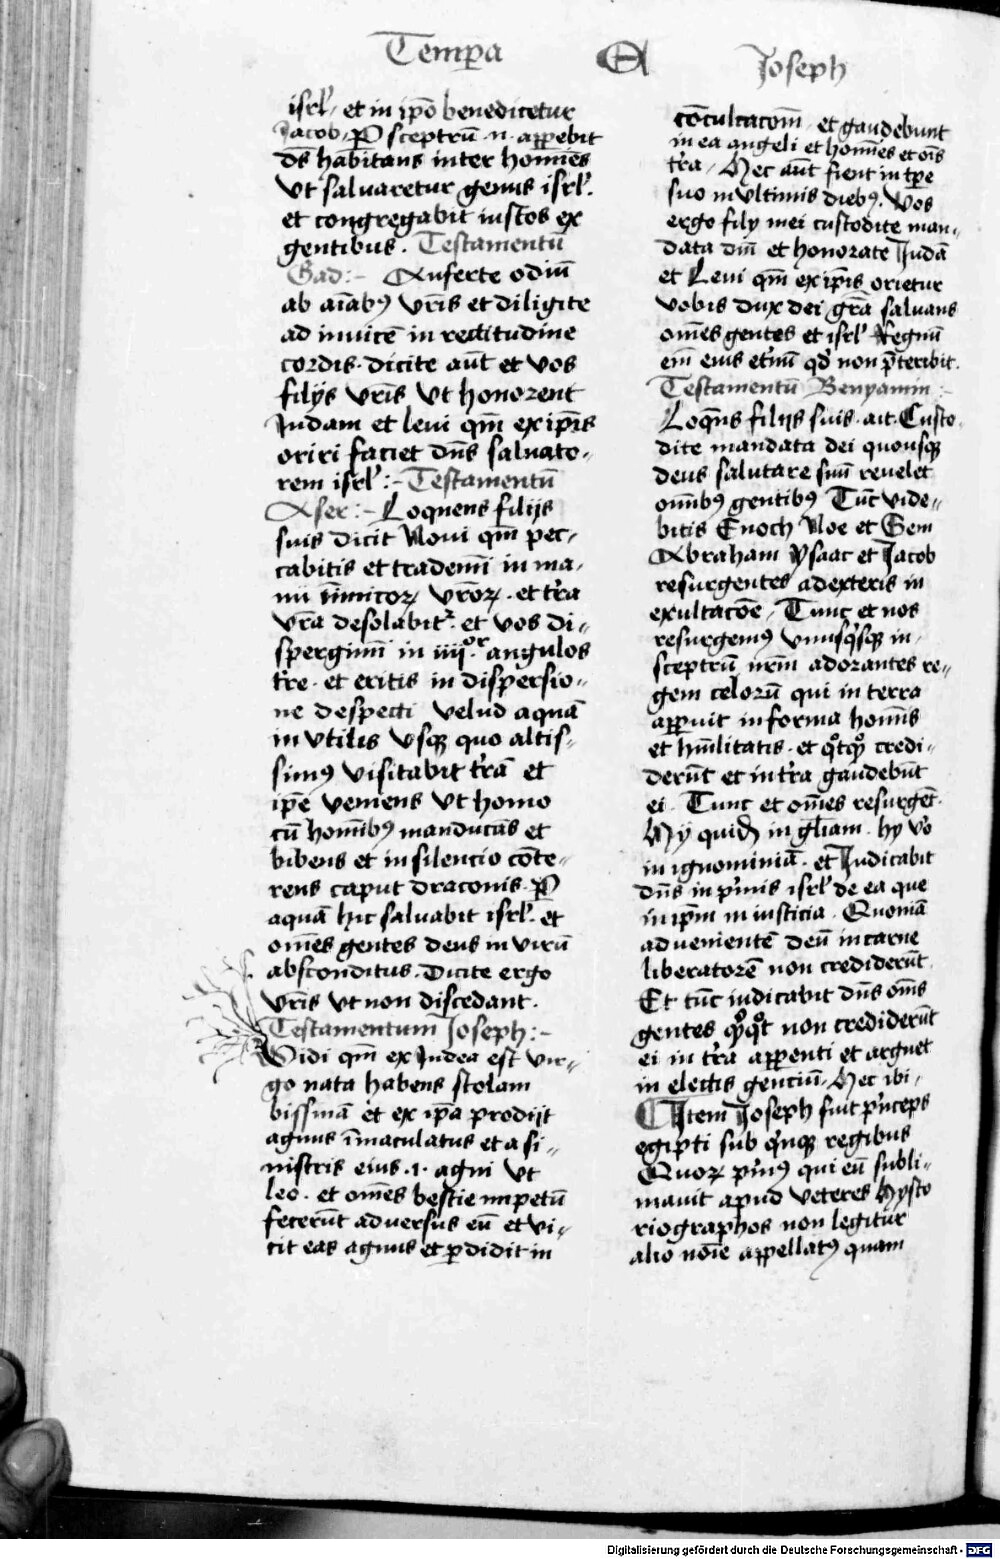 Temp̄a
Joseph
isrl̕ et in ip̄o benedicetur
Jacob. P̲ sceptrū .n. apparebit
dn̄s habitans inter homīes
ut saluaretur genus isrl̕.
et congregabit iustos ex
gentibus. Testamentū
Gad:- Auferte odiū
ab aīabꝰ vr̄is et diligite
ad inuicē in rectitudine
cordis. dicite aūt et vos
filijs vr̄is vt honorent
Judam et leui qm̄ ex ip̄is
oriri faciet dn̄s saluato-
rem isrl̕:- Testamentū
Aser:- Loquens filijs
suis dicit Noui qm̄ pec-
cabitis et trademī in ma-
nu inīmicoꝝ vr̄oꝝ. et tr̄a
vr̄a desolabit᷑. et vos di-
spergimī in iiijᵒʳ angulos
tr̄e. et eritis in dispersio-
ne despecti velud aquā
in vtilis vsqꝫ quo altis-
simꝰ visitabit tr̄am et
ip̄e veniens vt homo
cū homībꝰ manducās et
bibens et in silencio cōte-
rens caput draconis. P̲
aquā hic saluabit isrl̕. et
om̄es gentes deus in virū
absconditus. Dicite ergo
vr̄is vt non discedant.
Testamentum Joseph:-
Vidi qm̄ ex Judea est vir-
go nata habens stolam
bissinā et ex ip̄a prodijt
agnus īmaculatus et a si-
nistris eius .1. agni vt
leo. et om̄es bestie impetū
fecerūt aduersus eū et vi-
cit eas agnus et ꝑdidit in
cōculcacōem̄, et gaudebunt
in ea angeli et homīes et oīs
tr̄a, Hec aūt fient in tp̄e
suo in vltimis diebꝰ. Vos
ergo filij mei custodite man-
data dn̄i et honorate Judā
et Leui qm̄ ex ip̄is orietur
vobis dux dei gr̄a saluans
om̄es gentes et isrl̕ Regnū
em̄ eius et̕nū qd̕ non p̄teribit.
Testamentū Benyamin:-
Loq̄ns filijs suis. ait. Custo
dite mandata dei quousqꝫ
deus salutare suū reuelet
om̄ibꝰ gentibꝰ Tūc vide-
bitis Enoch Noe et Sem
Abraham Ysaac et Jacob
resurgentes a dexteris in
exultacōe, Tunc et nos
resurgemꝰ vnusq̕sqꝫ in
sceptrū nr̄m adorantes re-
gem celorū qui in terra
apparuit in forma homīs
et hūilitatis. et qͦtqͦt credi-
derūt et in tr̄a gaudebūt
ei. Tunc et om̄es resurgēt.
Hij quidē in gl̄iam. hij vͦo
in ignominiā. et Judicabit
dn̄s in p̕mis isrl̕ de ea que
in ip̄m iniusticia. Quoniā
aduenientē deū in carne
liberatorē non crediderūt.
Et tūc iudicabit dn̄s om̄s
gentes qͦtqͦt non crediderūt
ei in tr̄a apparenti et arguet
in electis genciū. Hec ibi.
Item Joseph fuit p̕nceps
egipti sub q̕nqꝫ regibus
Quoꝝ p̕mꝰ qui eū subli-
mauit apud veteres hysto
riographos non legitur
alio noīe appellatꝰ quam
Digitalisierung gefördert durch die Deutsche Forschungsgemeinschaft - DFG